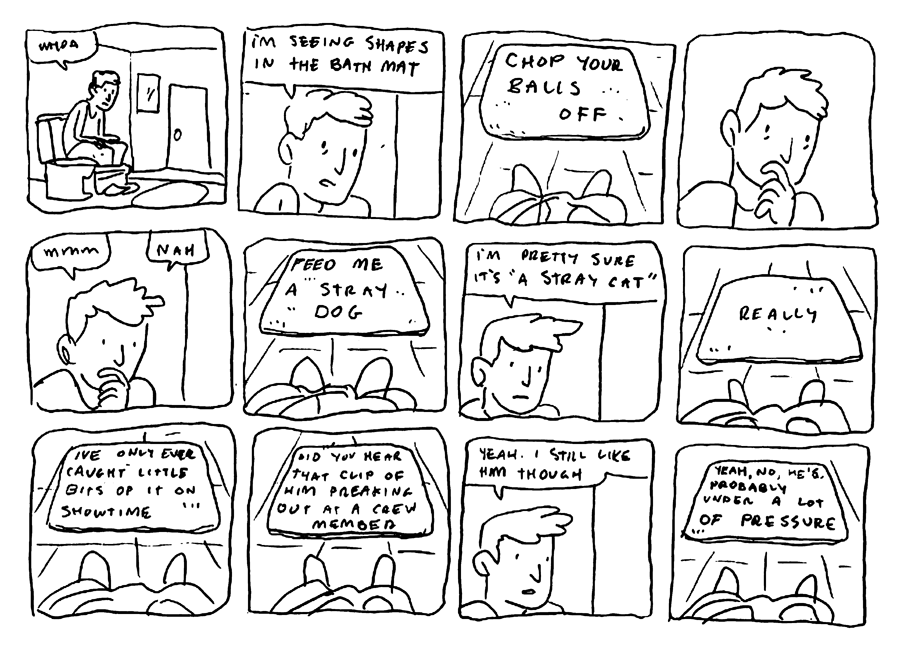 WHOA
I'M SEEING SHAPES
IN THE BATH MAT
CHOP YOUR
BALLS
OFF
MMMM
NAH
FEED ME
A STRAY
DOG
I'M PRETTY SURE
IT'S "A STRAY CAT"
REALLY
I'VE ONLY EVER
CAUGHT LITTLE
BITS OF IT ON
SHOWTIME
DID YOU HEAR
THAT CLIP OF
HIM FREAKING
OUT AT A CREW
MEMBER
YEAH. I STILL LIKE
HIM THOUGH
YEAH, NO, HE'S
PROBABLY
UNDER A LOT
OF PRESSURE